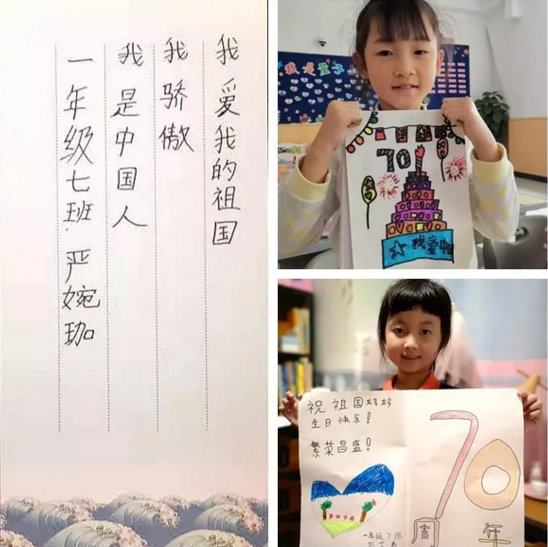 我爱我的祖国
我骄傲
我是中国人
一年级七班 严婉珈
70
我爱中
祝祖国妈妈
生日快乐!
繁荣昌盛!
70
周年
一年级7班